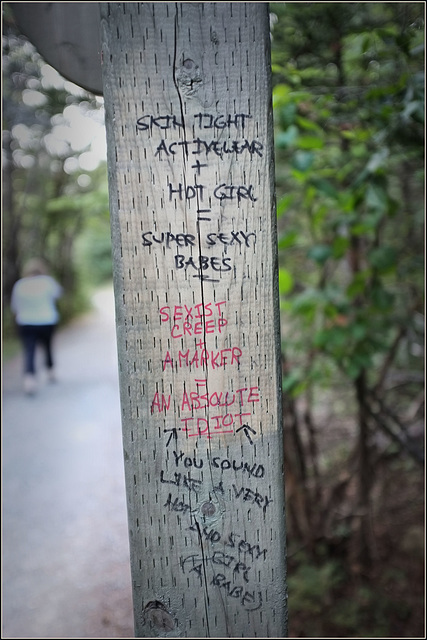 SKIN TIGHT
ACTIVEWEAR
+
HOT GIRL
=
SUPER SEXY
BABES
SEXIST
CREEP
+
A MARKER
=
AN ABSOLUTE
IDIOT
YOU SOUND
LIKE A VERY
HOT
AND SEXY
GIRL
(A BABE)